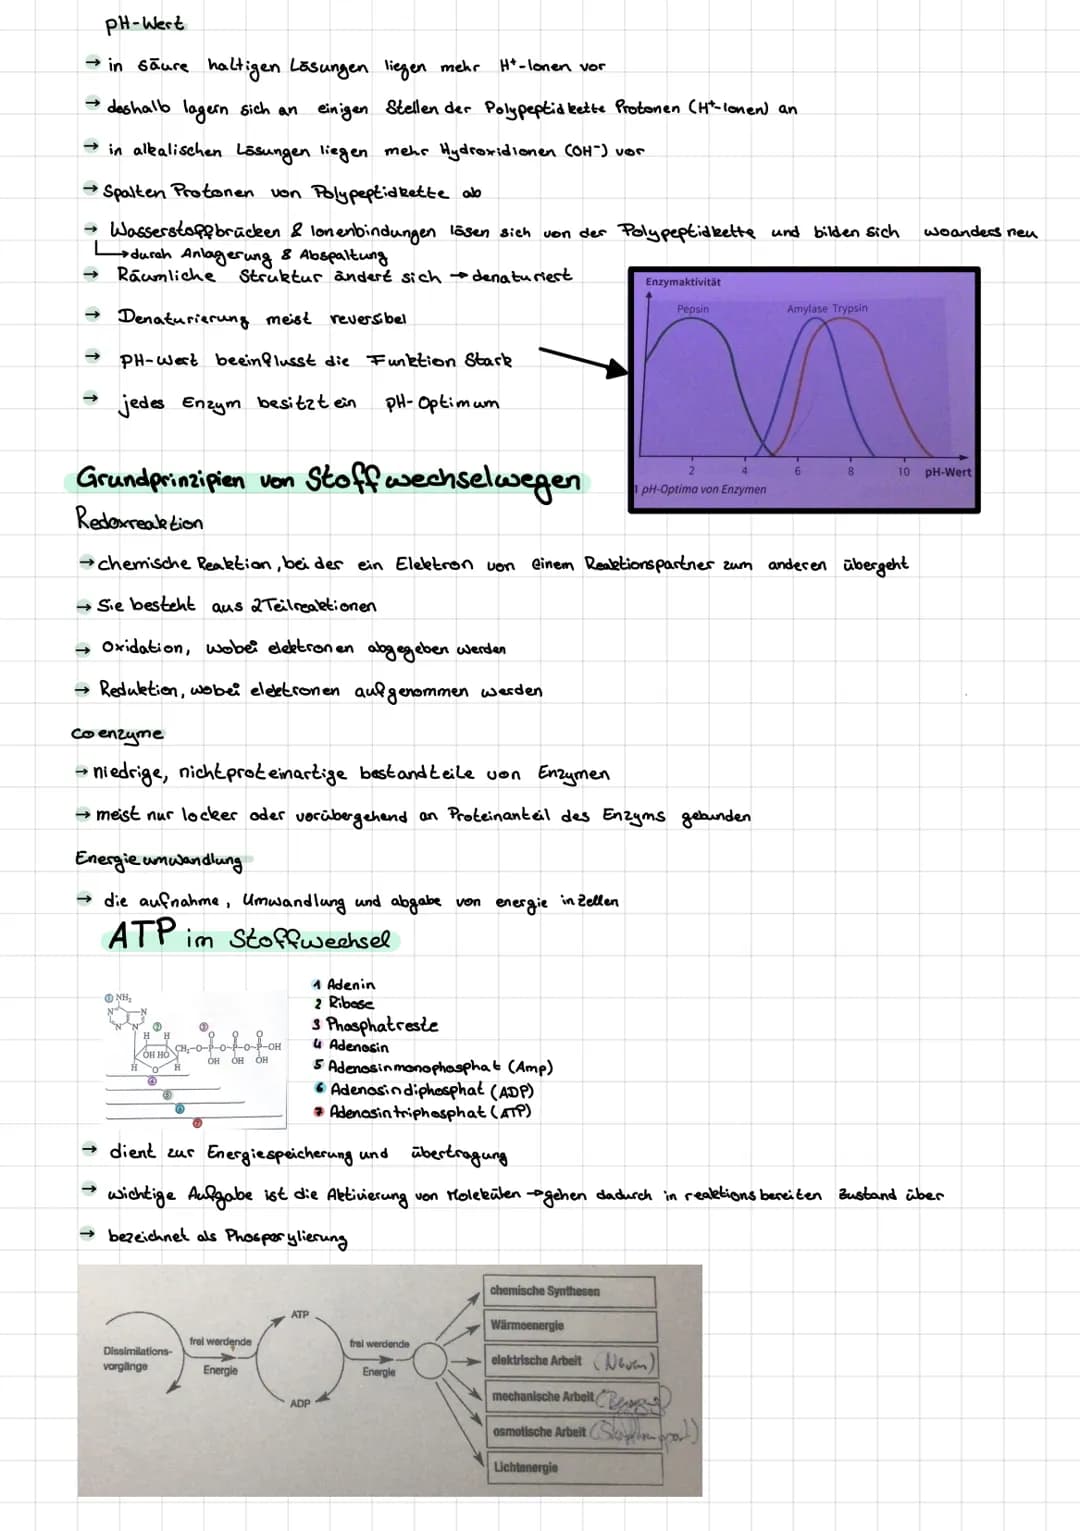 pH-Wert
→ in säure haltigen Lösungen liegen mehr H⁺-Ionen vor
→ deshalb lagern sich an einigen Stellen der Polypeptidkette Protonen (H⁺-Ionen) an
→ in alkalischen Lösungen liegen mehr Hydroxidionen (OH⁻) vor
→ Spalten Protonen von Polypeptidkette ab
→ Wasserstoffbrücken & Ionenbindungen lösen sich von der Polypeptidkette und bilden sich woanders neu
↳ durch Anlagerung & Abspaltung
→ Räumliche Struktur ändert sich → denaturiert
→ Denaturierung meist reversibel
→ pH-Wert beeinflusst die Funktion Stark
→ jedes Enzym besitzt ein pH-Optimum
Enzymaktivität
Pepsin Amylase Trypsin
2 4 6 8 10 pH-Wert
1 pH-Optima von Enzymen
Grundprinzipien von Stoffwechselwegen
Redoxreaktion
→ chemische Reaktion, bei der ein Elektron von einem Reaktionspartner zum anderen übergeht
→ Sie besteht aus 2 Teilreaktionen
→ Oxidation, wobei elektronen abgegeben werden
→ Reduktion, wobei elektronen aufgenommen werden
Coenzyme
→ niedrige, nichtproteinartige bestandteile von Enzymen
→ meist nur locker oder vorübergehend an Proteinanteil des Enzyms gebunden
Energieumwandlung
→ die aufnahme, Umwandlung und abgabe von energie in Zellen
ATP im Stoffwechsel
① NH₂
N N
N N
② ③
H H O O O
CH₂-O-P-O-P-O-P-OH
OH HO OH OH OH
H O H
④
⑤
⑥
⑦
1 Adenin
2 Ribose
3 Phosphatreste
4 Adenosin
5 Adenosinmonophosphat (Amp)
6 Adenosindiphosphat (ADP)
7 Adenosintriphosphat (ATP)
→ dient zur Energiespeicherung und übertragung
→ wichtige Aufgabe ist die Aktivierung von Molekülen → gehen dadurch in reaktionsbereiten Zustand über
→ bezeichnet als Phosporylierung
Dissimilations-
vorgänge
frei werdende
Energie
ATP
ADP
frei werdende
Energie
chemische Synthesen
Wärmeenergie
elektrische Arbeit
mechanische Arbeit
osmotische Arbeit
Lichtenergie